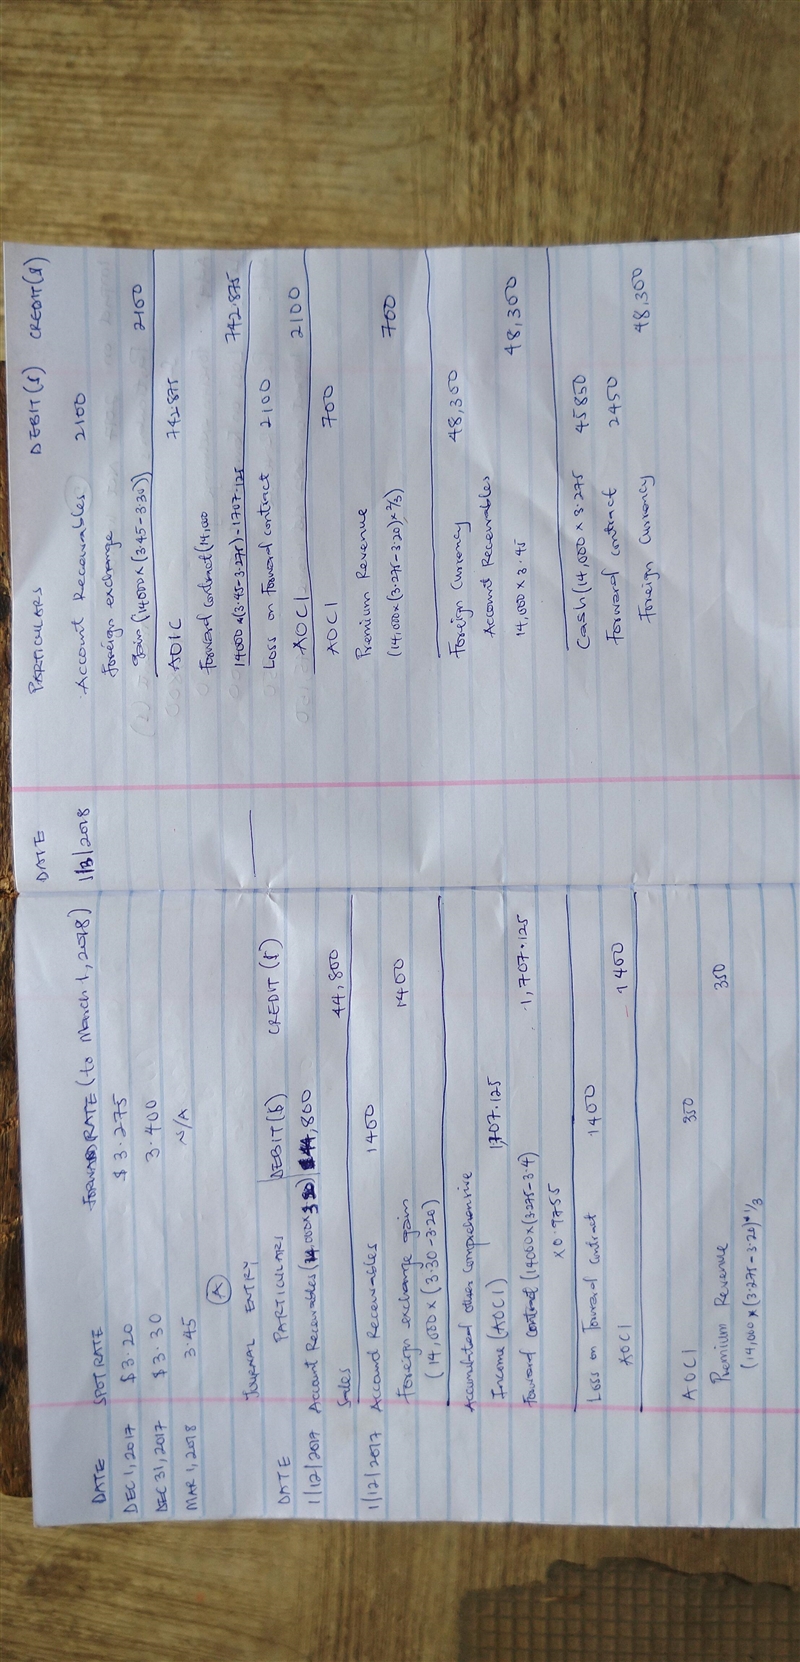 DATE SPOT RATE FORWARD RATE (to March 1, 2018)
DEC 1, 2017 $3.20 $3.275
DEC 31, 2017 $3.30 3.400
MAR 1, 2018 3.45 N/A
(A)
JOURNAL ENTRY
DATE PARTICULARS DEBIT($) CREDIT($)
1/12/2017 Account Receivables (14,000x3.20) 44,800
Sales 44,800
1/12/2017 Account Receivables 1400
Foreign exchange gain 1400
(14,000x(3.30-3.20)
Accumulated other comprehensive
Income (AOCI) 1,707.125
Forward contract (14000x(3.275-3.4) 1,707.125
x0.9755
Loss on Forward contract 1400
AOCI 1400
AOCI 350
Premium Revenue 350
(14,000x(3.275-3.20)*1/3
DATE PARTICULARS DEBIT($) CREDIT($)
1/3/2018 Account Receivables 2100
Foreign exchange
gain (14000x(3.45-3.30)) 2100
AOIC 742.875
Forward contract (14,000
14000x(3.45-3.275)-1707.125 742.875
Loss on Forward contract 2100
AOCI 2100
AOCI 700
Premium Revenue 700
(14,000x(3.275-3.20)x2/3)
Foreign Currency 48,300
Account Receivables 48,300
14,000x3.45
Cash (14,000x3.275 45850
Forward contract 2450
Foreign Currency 48,300